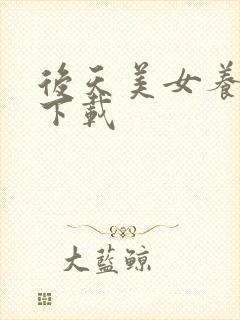 後天美女養
下載
大藍鯨